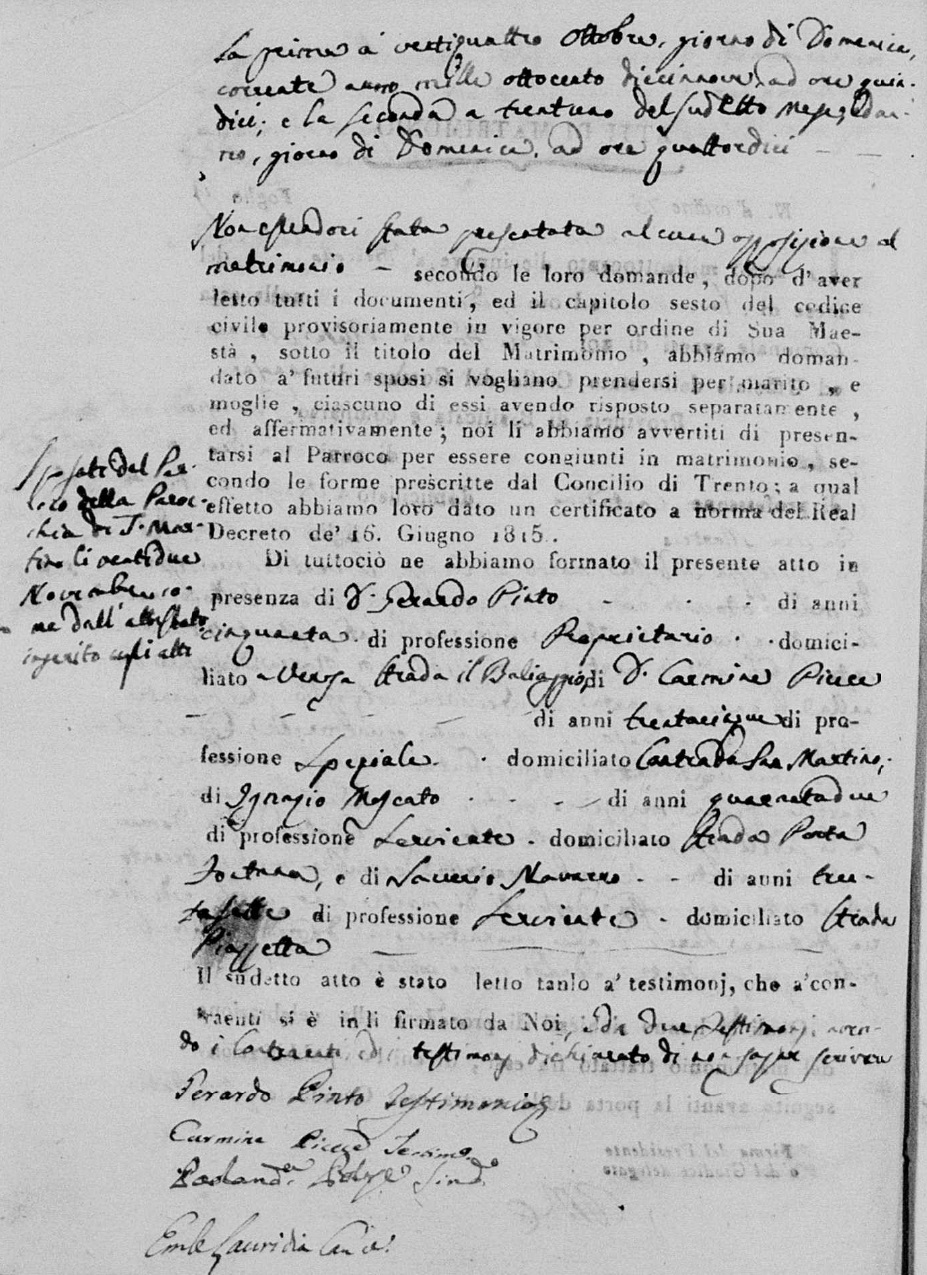 La prima a ventiquattro Ottobre, giorno di Domenica,
corrente anno mille ottocento diecinnove, ad ore quin-
dici; e la seconda a trentuno del sudetto mese, ed an-
no, giorno di Domenica, ad ore quattordici
Non essendosi stata presentata alcuna opposizione al
matrimonio - secondo le loro domande, dopo d'aver
letto tutti i documenti, ed il capitolo sesto del codice
civile provisoriamente in vigore per ordine di Sua Mae-
stà, sotto il titolo del Matrimonio, abbiamo doman-
dato a' futuri sposi si vogliano prendersi per marito, e
moglie, ciascuno di essi avendo risposto separatamente,
ed affermativamente; noi li abbiamo avvertiti di presen-
tarsi al Parroco per essere congiunti in matrimonio, se-
condo le forme prescritte dal Concilio di Trento; a qual
effetto abbiamo loro dato un certificato a norma del Real
Decreto de' 16. Giugno 1815.
Sposati dal Par-
roco della Paroc-
chia di S. Mar-
tino li ventidue
Novembre, co-
me dall' attestato
inserito agli atti
Di tuttociò ne abbiamo formato il presente atto in
presenza di D. Gerardo Pinto - di anni
cinquanta di professione Proprietario domici-
liato strada il Baliaggio, di D. Carmine Picce
di anni trentacinque di pro-
fessione Speziale domiciliato Contrada San Martino,
di Ignazio Moscato - di anni quarantadue
di professione Serviente - domiciliato Strada Porta
Fontana, e di Saverio Navarro - di anni tren-
tasette di professione Serviente - domiciliato Strada
Piazzetta
Il sudetto atto è stato letto tanto a' testimonj, che a' con-
traenti si è indi firmato da Noi, e da due Testimonj, aven-
do i Contraenti, ed i testimonj dichiarato di non saper scrivere
Gerardo Pinto Testimonio
Carmine Picce Testimo.
Sind.º